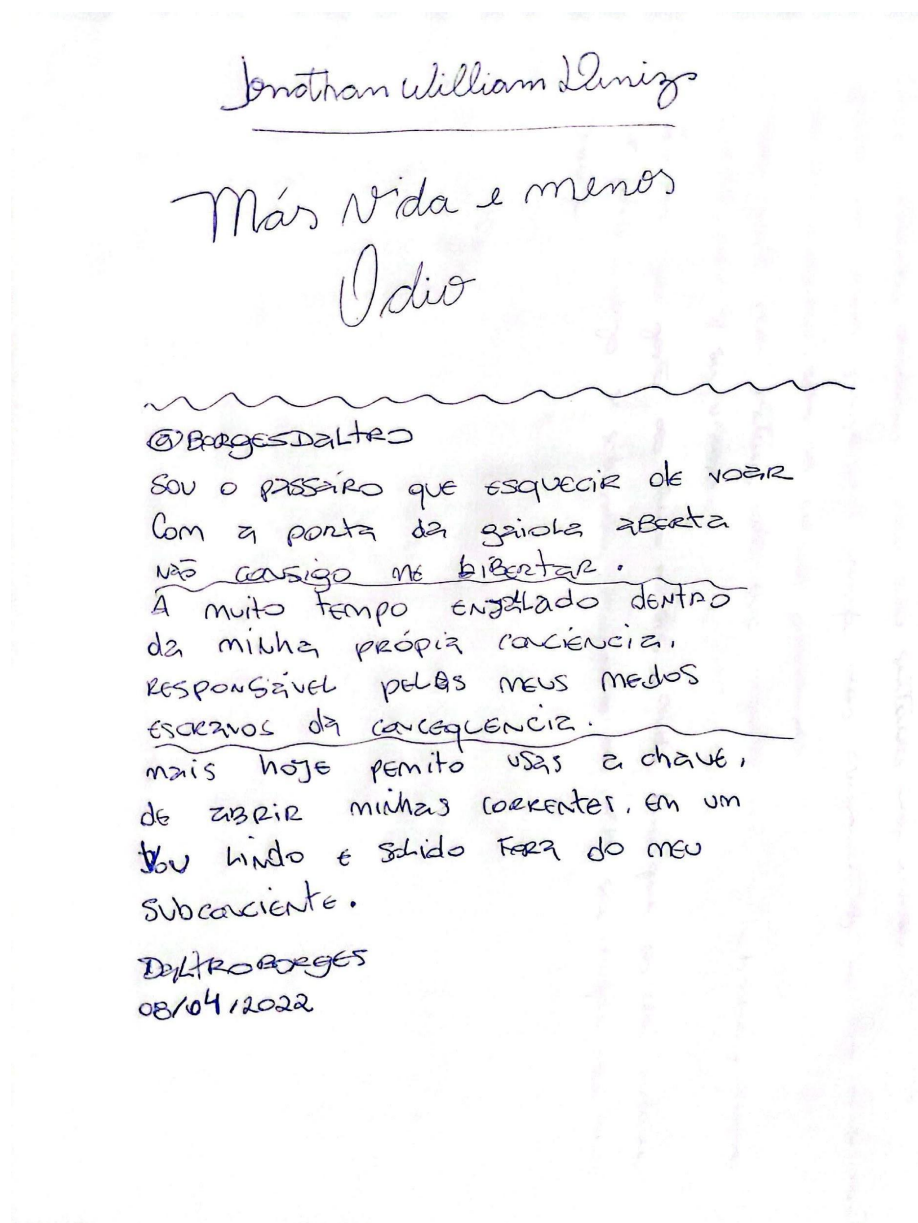 Jonathan William Diniz
Más vida e menos
Odio
@BORGESDALTRO
SOU O PASSÁIRO QUE ESQUECIR DE VOAR
COM A PORTA DA gAIOLA ABERTA
NÃO CONSIGO ME LIBERTAR.
A MUITO TEMPO ENJALADO DENTRO
DA MINHA PRÓPIA CONCIÊNCIA,
RESPONSÁVEL PELOS MEUS MEDOS
ESCRAVOS DA CONCEQUENCIA.
MAIS HOJE PEMITO USAS A CHAVE,
DE ABRIR MINHAS CORRENTES, EM UM
VOU LINDO E SÓLIDO FORA DO MEU
SUBCONCIENTE.
DALTROBORGES
08/04/2022